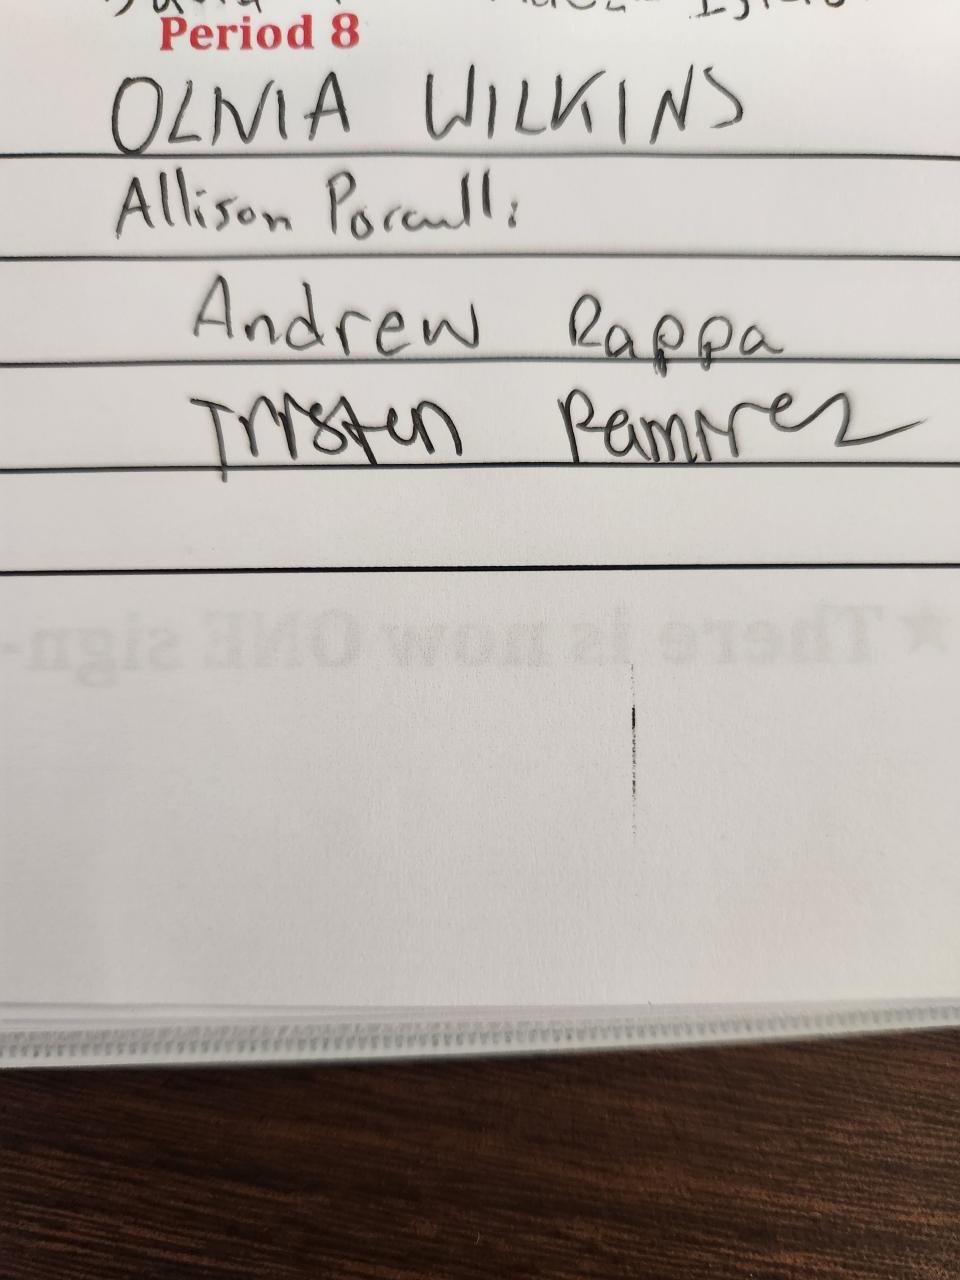 Period 8
OLIVIA WILKINS
Allison
Andrew Rappa
Tristen Ramirez
★There is now ONE sign-